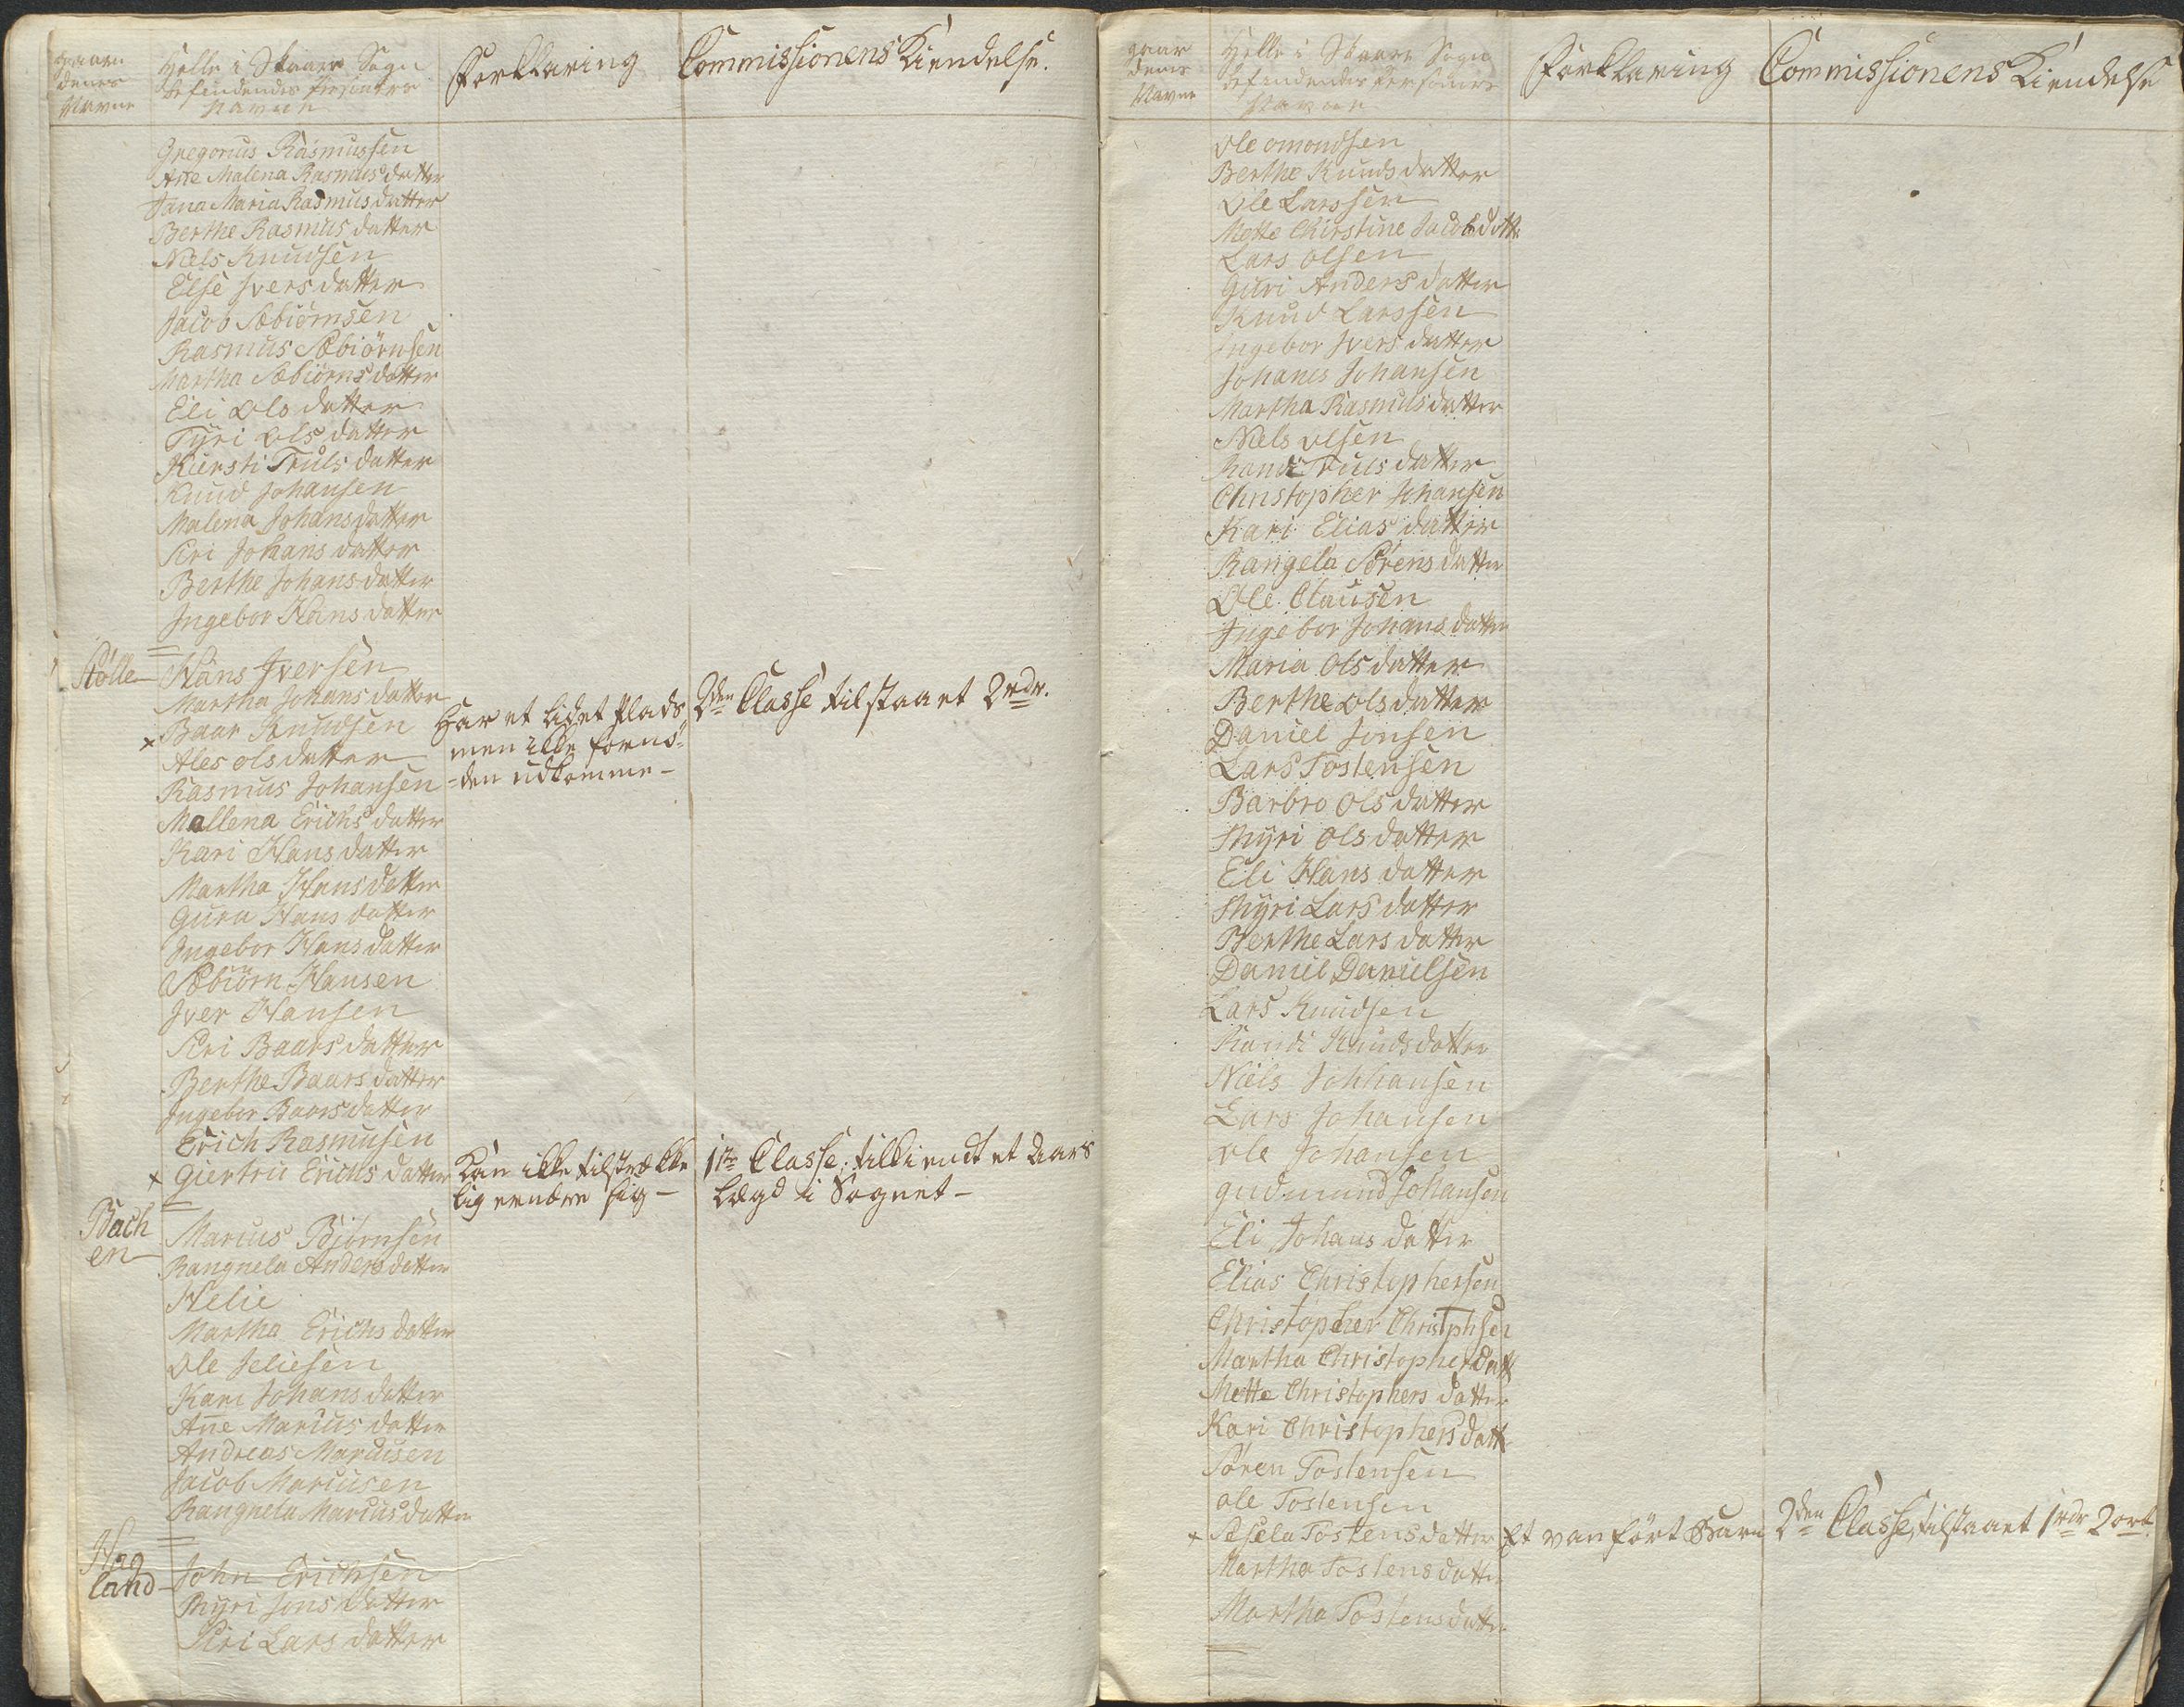 Gaar
denes
Navne
Helle i Skaare Sogn
befindendes Persohners
Navne
Forklaring
Commissionens Kiendelse.
Gregorius Rasmussen
Añe Malena Rasmusdatter
Jana Maria Rasmusdatter
Berthe Rasmus datter
Niels Knudsen
Else Ivers datter
Jacob Sæbiörnsen
Rasmus Sæbiörnsen
Martha Sæbiörnsdatter
Eli Ols datter
Tÿri Ols datter
Kiersti Truls datter
Knud Johansen
Malena Johansdatter
Siri Johans datter
Berthe Johansdatter
Ingebor Hans datter
Stölle
Hans Iversen
Martha Johans datter
× Baar Knudsen
Har et lidet Plads
2den Classe tilstaaet 2rdr.
Ales olsdatter
men ikke fornö-
Rasmus Johansen
-den udkomme-
Mallena Erichs datter
Kari Hans datter
Martha Hansdatter
Gura Hans datter
Ingebor Hansdatter
Sæbiörn Hansen
Iver Hansen
Siri Baars datter
Berthe Baars datter
Ingebor Baarsdatter
Erich Rasmusen
× Giertru Erichs datter
Kan ikke tilstrække
1ste Classe, tilkiendt et Aars
lig ernære sig-
lægd i Sognet-
Bach
en
Marcus Bjórnsen
Rangnela Andersdatter
Helie
Martha Erichs datter
Ole Heliesen
Kari Johans datter
Añe Marcus datter
Andreas Marcusen
Jacob Marcusen
Rangnela Marcusdatter
Hag
land
John Erichsen
Thÿri Jons datter
Siri Lars datter
gaar
denes
Navne
Helle i Skaare Sogn
befindendes Persohners
Navne
Forklaring
Commissionens Kiendelse
Ole omondsen
Berthe Knuds datter
Ole Larssen
Mette Chirstine Jacobdatt
Lars olsen
Guri Anders datter
Knud Larssen
Ingebor Ivers datter
Johanes Johansen
Martha Rasmusdatter
Niels olsen
Randi Truls datter
Christopher Johansen
Kari Elias datter
Rangela Sörens datter
Ole Clausen
Ingebor Johans datter
Maria Ols datter
Berthe ols datter
Daniel Jonsen
Lars Tostensen
Barbro Ols datter
Thÿri Ols datter
Eli Hans datter
Thÿri Lars datter
Berthe Lars datter
Daniel Danielsen
Lars Knudsen
Randi Knudsdatter
Niels Johhansen
Lars Johansen
Ole Johansen
gudmund Johansen
Eli Johans datter
Elias Christophersen
Christopher Christphsen
Martha Christopherdatt
Mette Christophers datter
Kari Christophersdatt
Sören Tostensen
ole Tostensen
× Asela Tostensdatter
Et vanfört Barn
2den Classe, tilstaaet 1rdr 2ort.
Martha Tostensdatter
Martha Tostensdatter